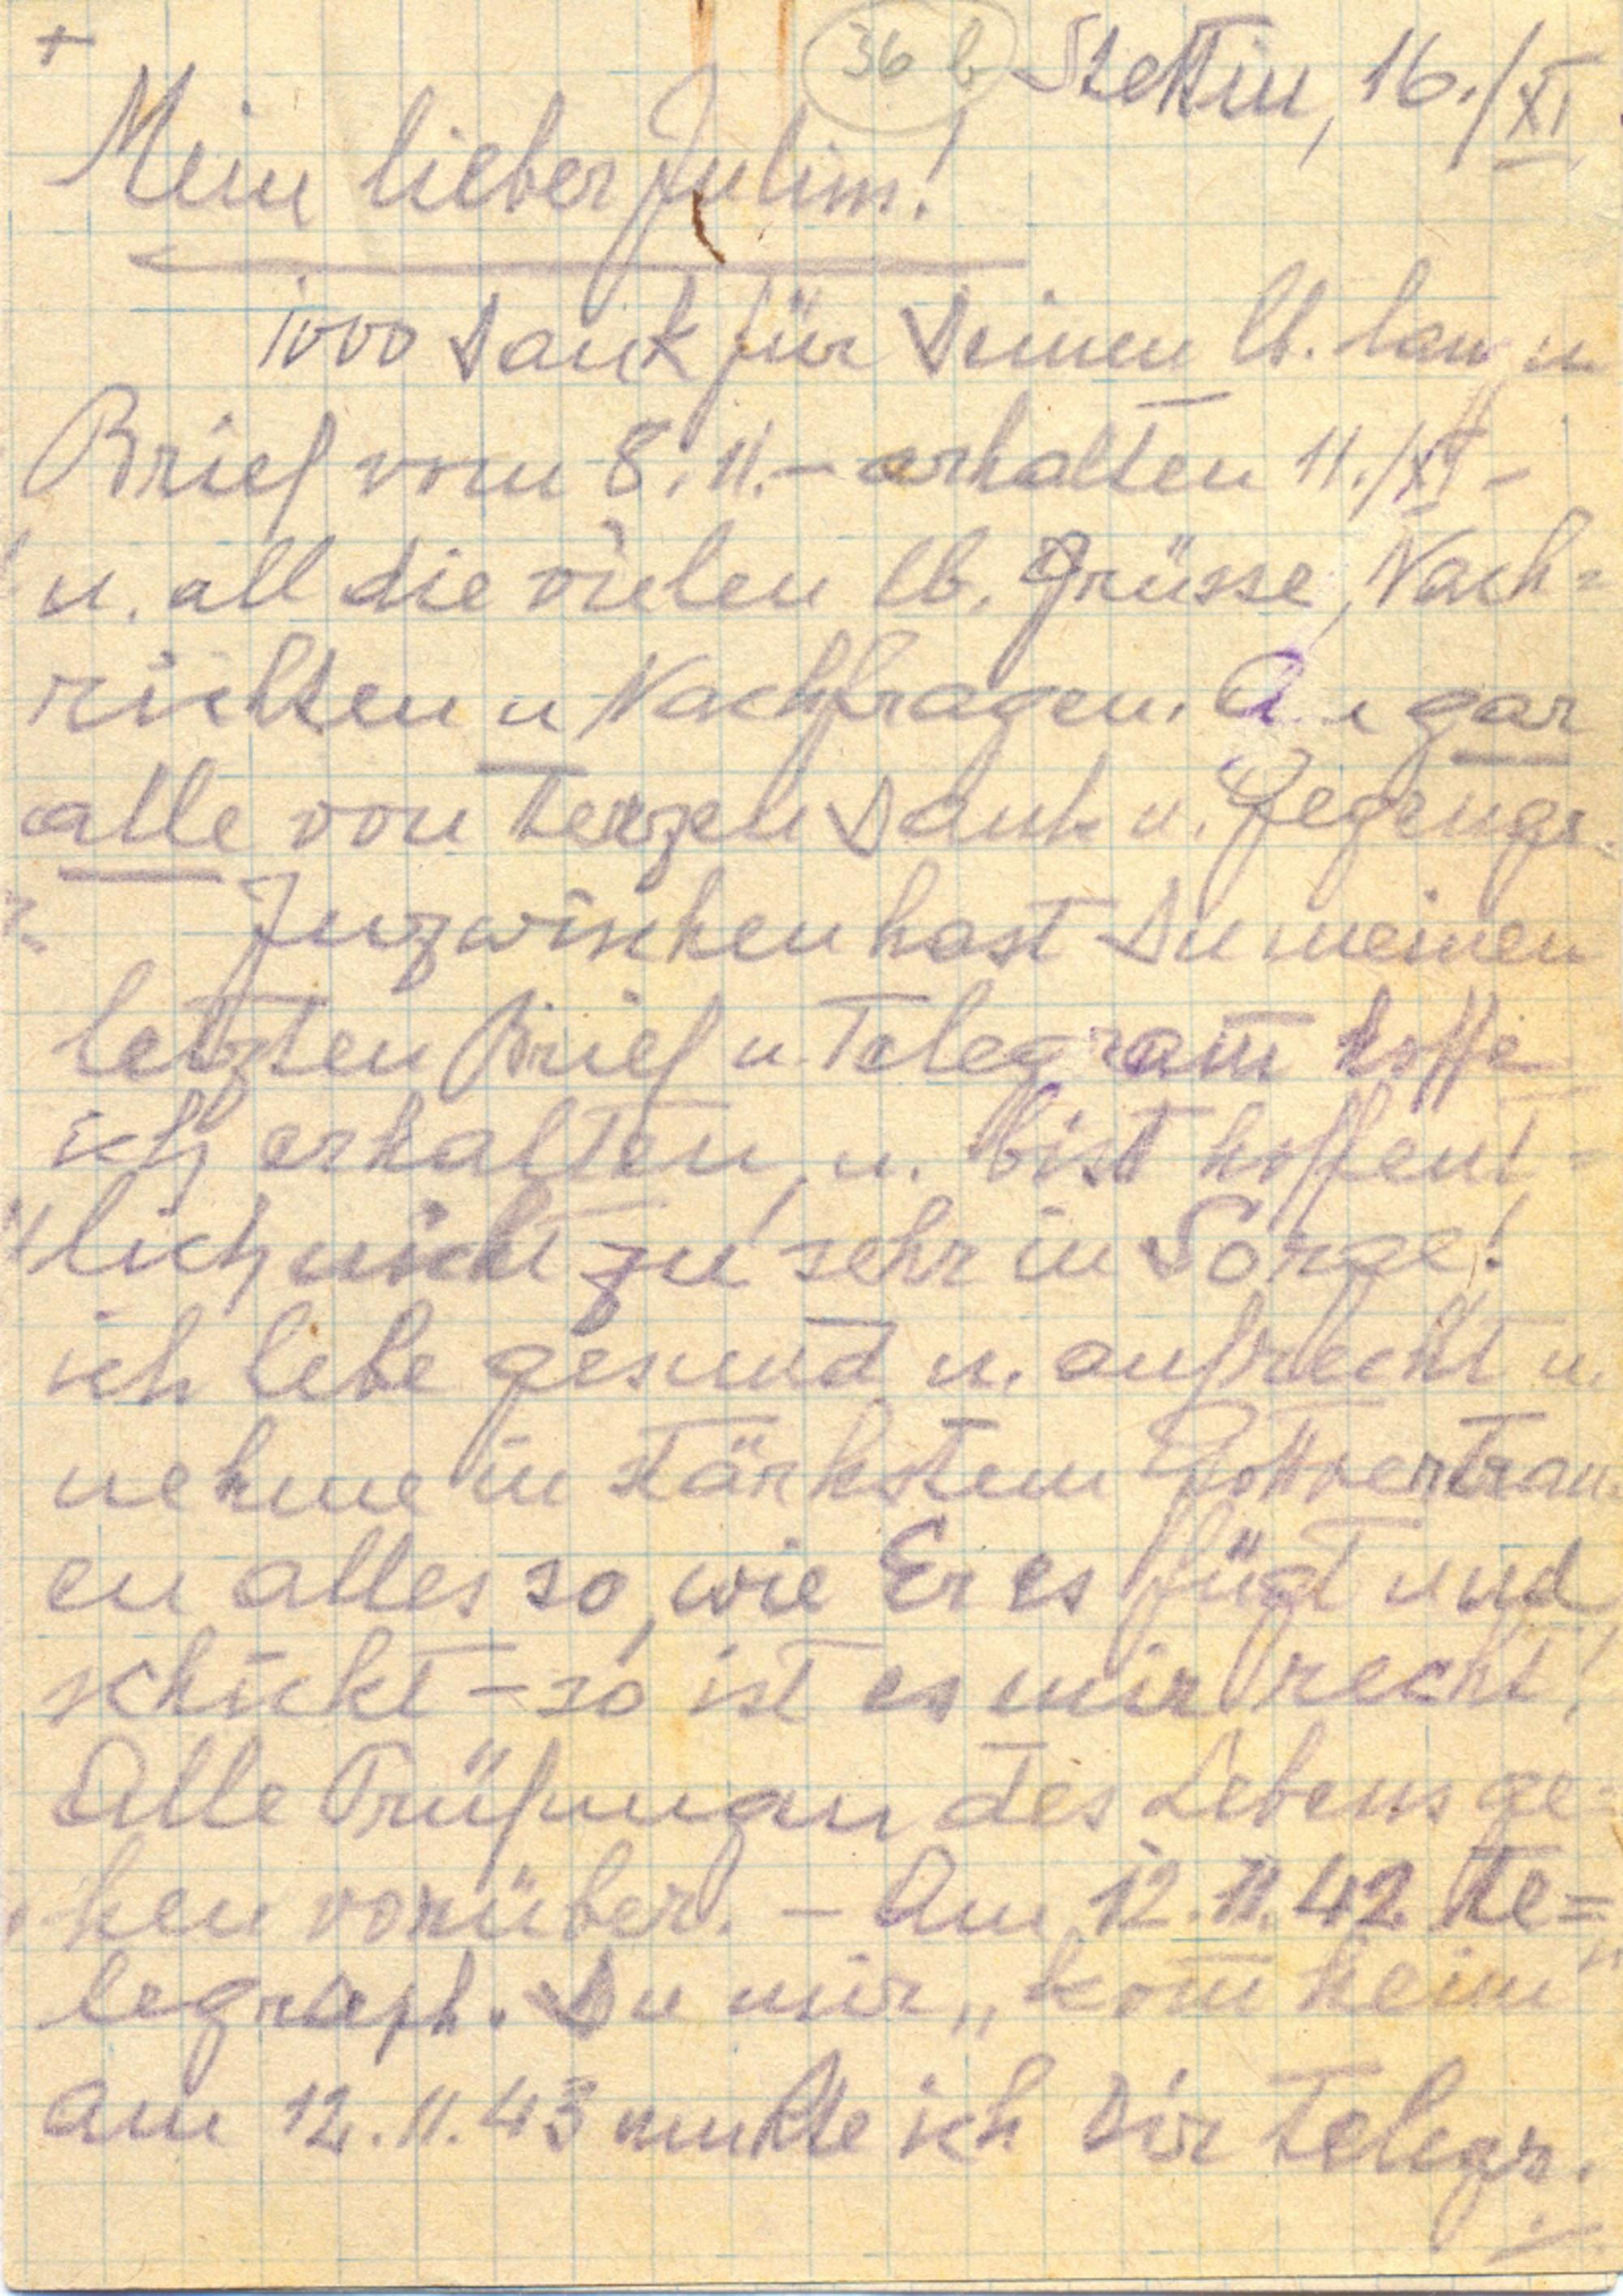 + 36 b Stettin, 16./XI.
Mein lieber Julim!
1000 Dank für Deinen lb. lan
Brief vom 8. 11. – erhalten 11./XI –
u. all die vielen lb. Grüsse, Nach=
richten u Nachfragen. An gar
alle von Herzen Dank u. Gegengr.
Inzwischen hast Du meinen
letzten Brief u. Telegram̅ hoffe
ich erhalten, u. bist hoffent-
lich nicht zu sehr in Sorge!
ich lebe gesund u. aufrecht u.
nehme in stärkstem Gottvertrau=
en alles so, wie Er es fügt und
schickt – so ist es mir recht!
Alle Prüfungen des Lebens ge=
hen vorüber. – Am 12. 11. 42 te=
legraph. Du mir „kom̅ heim"
am 12. 11. 43 mußte ich Dir telegr.